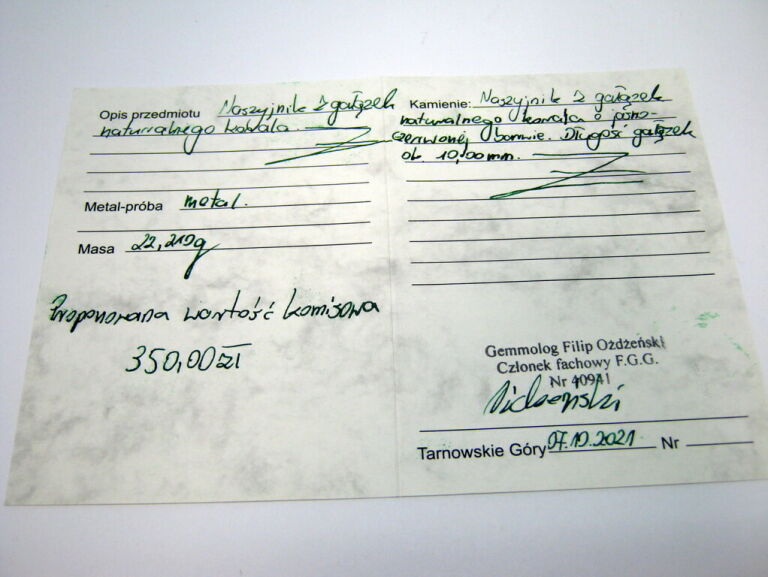 Opis przedmiotu Naszyjnik z gałązek
naturalnego korala.
Metal-próba metal.
Masa 22,219g
Proponowana wartość komisowa
350,00zł
Kamienie: Naszyjnik z gałązek
naturalnego korala o pięno-
czerwonej barwie. Długość gałązek
ok. 10,00mm.
Gemmolog Filip Ożdżeński
Członek fachowy F.G.G.
Nr 40941
Ożdżeński
Tarnowskie Góry 07.10.2021 Nr